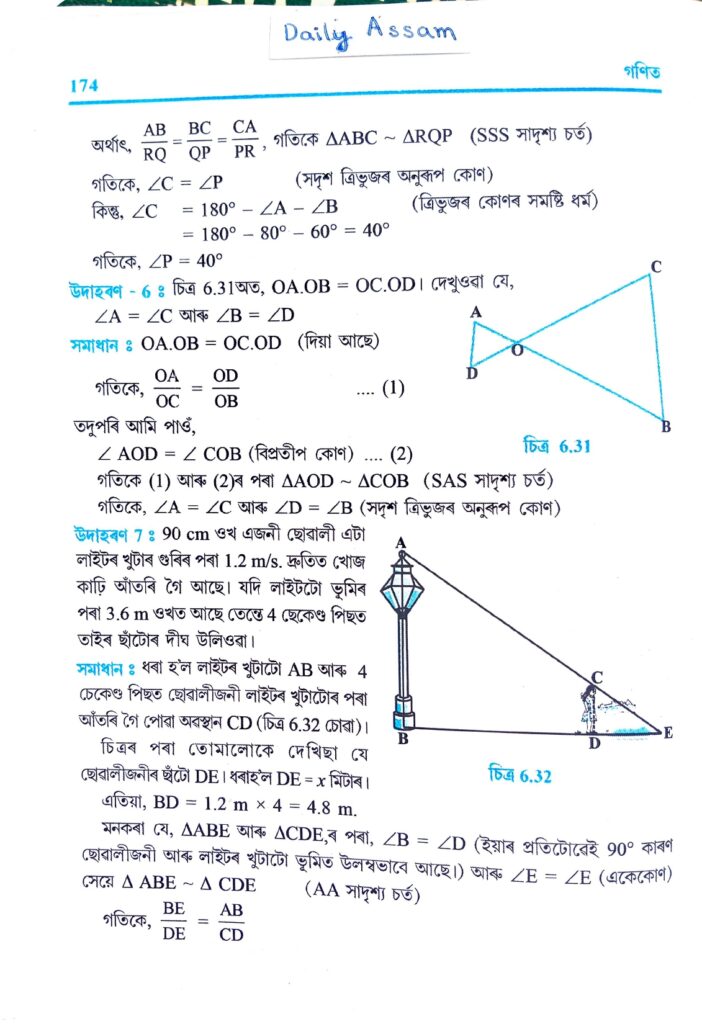 Daily Assam
174
গণিত
অৰ্থাৎ, AB/RQ = BC/QP = CA/PR , গতিকে ΔABC ~ ΔRQP (SSS সাদৃশ্য চৰ্ত)
গতিকে, ∠C = ∠P (সদৃশ ত্ৰিভুজৰ অনুৰূপ কোণ)
কিন্তু, ∠C = 180° – ∠A – ∠B (ত্ৰিভুজৰ কোণৰ সমষ্টি ধৰ্ম)
= 180° – 80° – 60° = 40°
গতিকে, ∠P = 40°
উদাহৰণ - 6 : চিত্ৰ 6.31অত, OA.OB = OC.OD। দেখুওৱা যে,
∠A = ∠C আৰু ∠B = ∠D
সমাধান : OA.OB = OC.OD (দিয়া আছে)
গতিকে, OA/OC = OD/OB .... (1)
তদুপৰি আমি পাওঁ,
∠ AOD = ∠ COB (বিপ্ৰতীপ কোণ) .... (2)
গতিকে (1) আৰু (2)ৰ পৰা ΔAOD ~ ΔCOB (SAS সাদৃশ্য চৰ্ত)
গতিকে, ∠A = ∠C আৰু ∠D = ∠B (সদৃশ ত্ৰিভুজৰ অনুৰূপ কোণ)
C
A
O
D
B
চিত্ৰ 6.31
উদাহৰণ 7 : 90 cm ওখ এজনী ছোৱালী এটা
লাইটৰ খুটাৰ গুৰিৰ পৰা 1.2 m/s. দ্ৰুতিত খোজ
কাঢ়ি আঁতৰি গৈ আছে। যদি লাইটটো ভূমিৰ
পৰা 3.6 m ওখত আছে তেন্তে 4 ছেকেণ্ড পিছত
তাইৰ ছাঁটোৰ দীঘ উলিওৱা।
সমাধান : ধৰা হ'ল লাইটৰ খুটাটো AB আৰু 4
চেকেণ্ড পিছত ছোৱালীজনী লাইটৰ খুটাটোৰ পৰা
আঁতৰি গৈ পোৱা অৱস্থান CD (চিত্ৰ 6.32 চোৱা)।
চিত্ৰৰ পৰা তোমালোকে দেখিছা যে
ছোৱালীজনীৰ ছাঁটো DE। ধৰাহ'ল DE = x মিটাৰ।
এতিয়া, BD = 1.2 m × 4 = 4.8 m.
A
C
B
D
E
চিত্ৰ 6.32
মনকৰা যে, ΔABE আৰু ΔCDE,ৰ পৰা, ∠B = ∠D (ইয়াৰ প্ৰতিটোৱেই 90° কাৰণ
ছোৱালীজনী আৰু লাইটৰ খুটাটো ভূমিত উলম্বভাবে আছে।) আৰু ∠E = ∠E (একেকোণ)
সেয়ে Δ ABE ~ Δ CDE (AA সাদৃশ্য চৰ্ত)
গতিকে, BE/DE = AB/CD